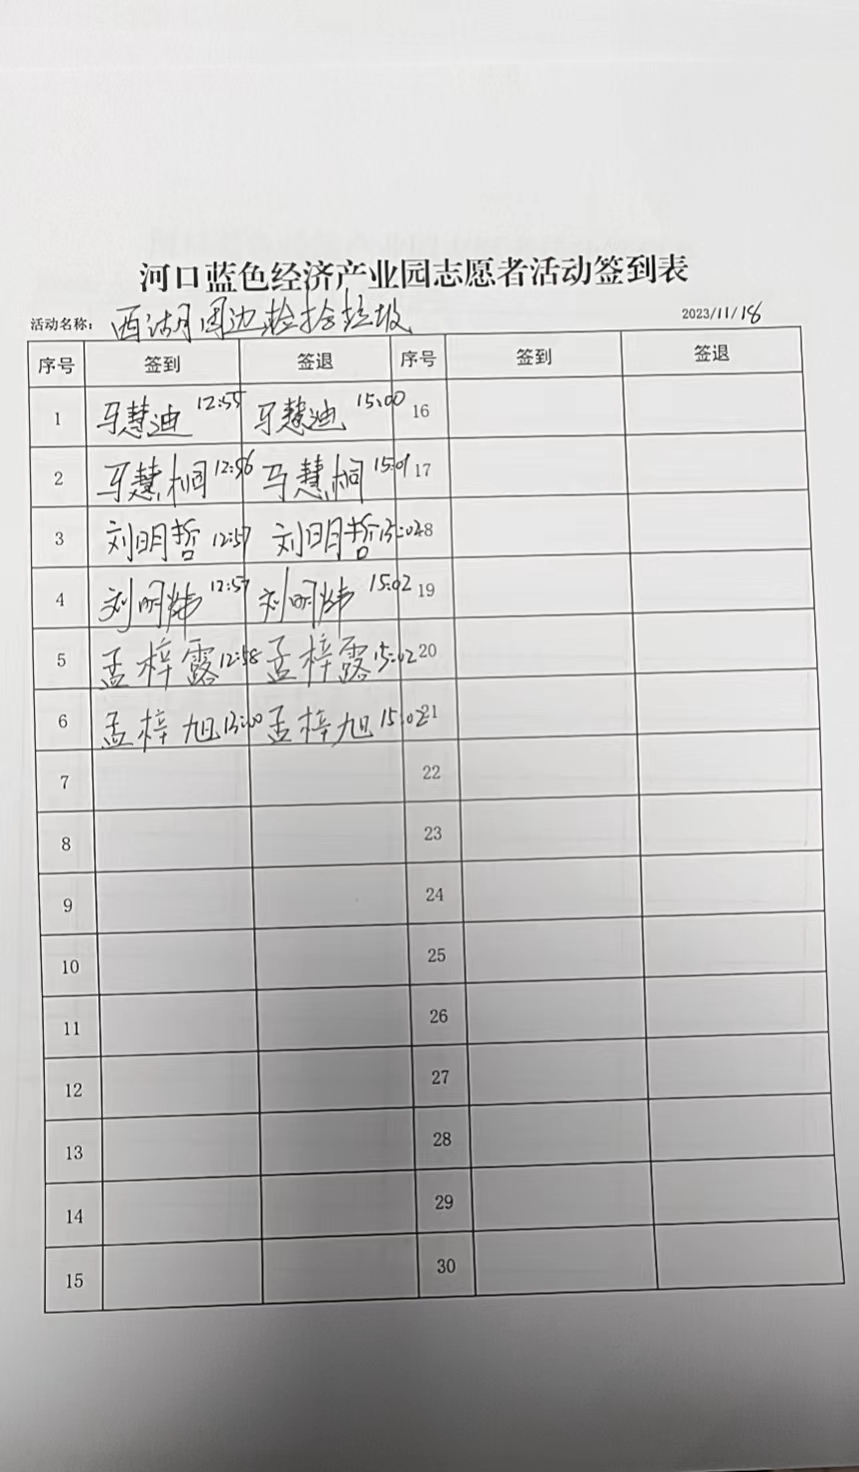 河口蓝色经济产业园志愿者活动签到表
活动名称: 西湖周边捡拾垃圾 2023/11/18
序号 签到 签退 序号 签到 签退
1 马慧迪 12:55 马慧迪 15:00 16
2 马慧桐 12:56 马慧桐 15:01 17
3 刘明哲 12:57 刘明哲 15:02 18
4 刘明炜 12:57 刘明炜 15:02 19
5 孟梓露 12:58 孟梓露 15:02 20
6 孟梓旭 13:00 孟梓旭 15:02 21
7 22
8 23
9 24
10 25
11 26
12 27
13 28
14 29
15 30